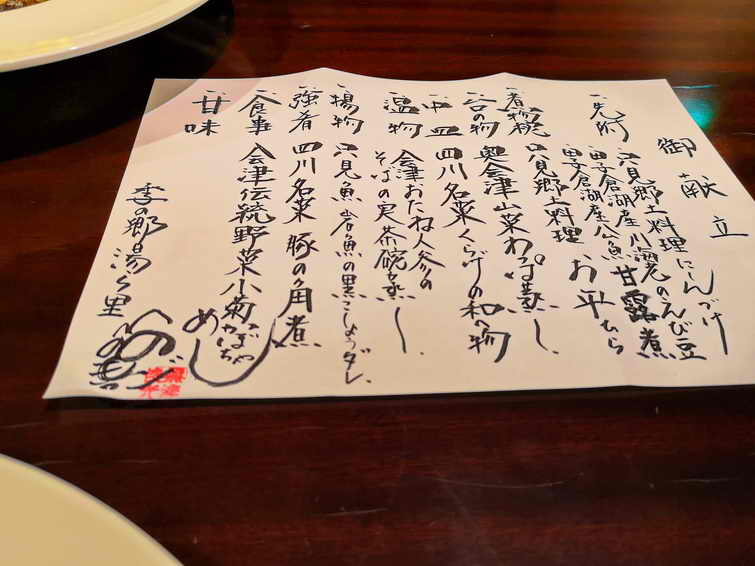 御献立
先附 只見郷土料理にしんづけ
田子倉湖産川海老のえび豆
田子倉湖産公魚甘露煮
煮物椀 只見郷土料理 お平
台の物 奥会津山菜わっぱ蒸し
中皿 四川名菜くらげの和へ物
温物 会津おたね人参の
そばの実茶碗蒸し
揚物 只見魚岩魚の黒こしょうダレ
強肴 四川名菜 豚の角煮
食事 会津伝統野菜小菊かぼちゃ
めし
甘味
季の郷湯ら里